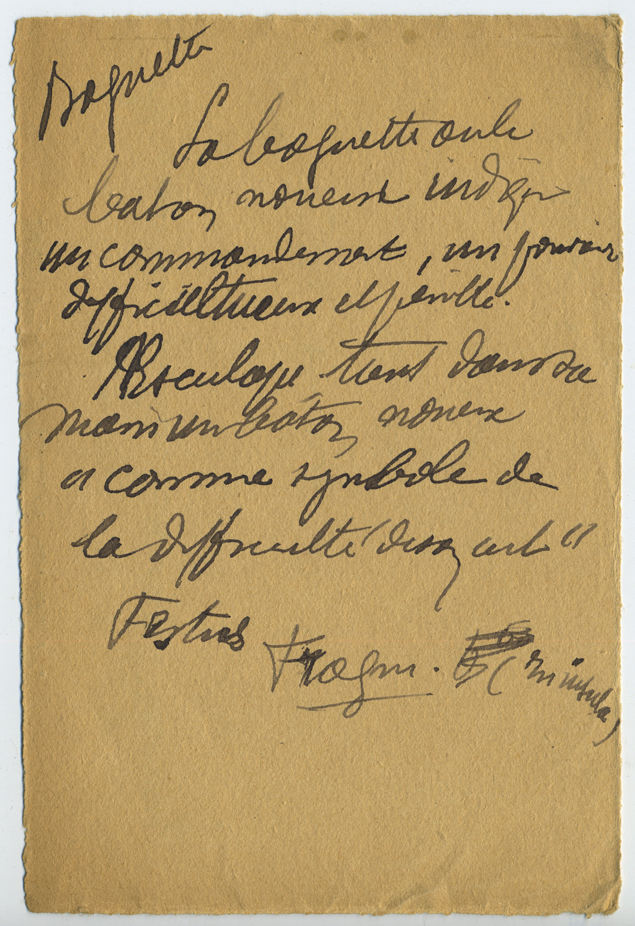 Baguette
La baguette ou le
baton noueux indique
un commandement, un pouvoir
difficultueux et pénible.
Aesculape tient dans sa
main un bâton noueux
" comme symbole de
la difficulté de son art "
Festus
Fragm. (in insula)